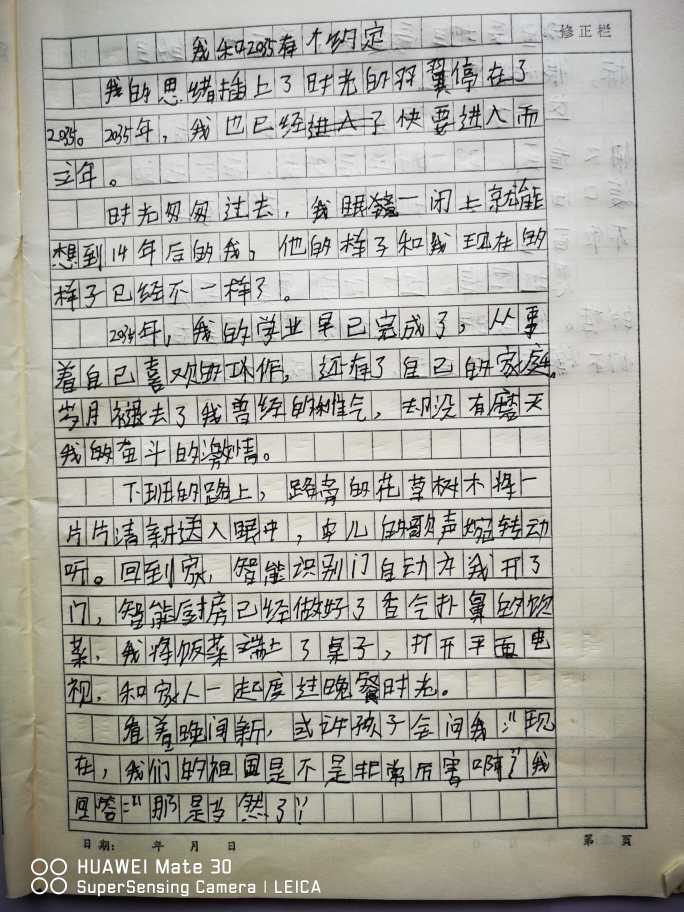 修正栏
我和2035有个约定
我的思绪插上了时光的羽翼停在了
2035。2035年，我也已经进入了快要进入而
立年。
时光匆匆过去，我眼一闭上就能
想到14年后的我，他的样子和我现在的
样子已经不一样了。
2035年，我的学业早已完成了，从事
着自己喜欢的工作，还有了自己的家庭，
岁月褪去了我曾经的稚气，却没有磨灭
我的奋斗的激情。
下班的路上，路旁的花草树木将一
片片清新送入眼中，鸟儿的歌声婉转动
听。回到家，智能识别门自动为我开了
门，智能厨房已经做好了香气扑鼻的饭
菜，我将饭菜端上了桌子，打开平面电
视，和家人一起度过晚餐时光。
看着晚间新，或许孩子会问我：“现
在，我们的祖国是不是非常厉害啊”我
回答：“那是当然了”
日期： 年 月 日
第 页
HUAWEI Mate 30
SuperSensing Camera | LEICA